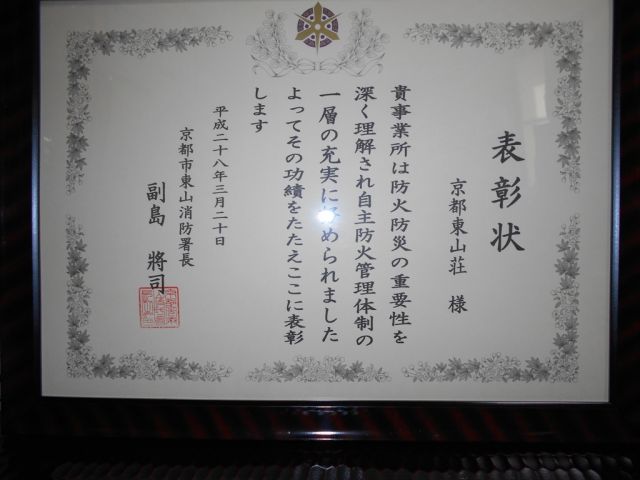 表彰状
京都東山荘 様
貴事業所は防火防災の重要性を
深く理解され自主防火管理体制の
一層の充実に努められました
よってその功績をたたえここに表彰
します
平成二十八年三月二十日
京都市東山消防署長
副島 將司